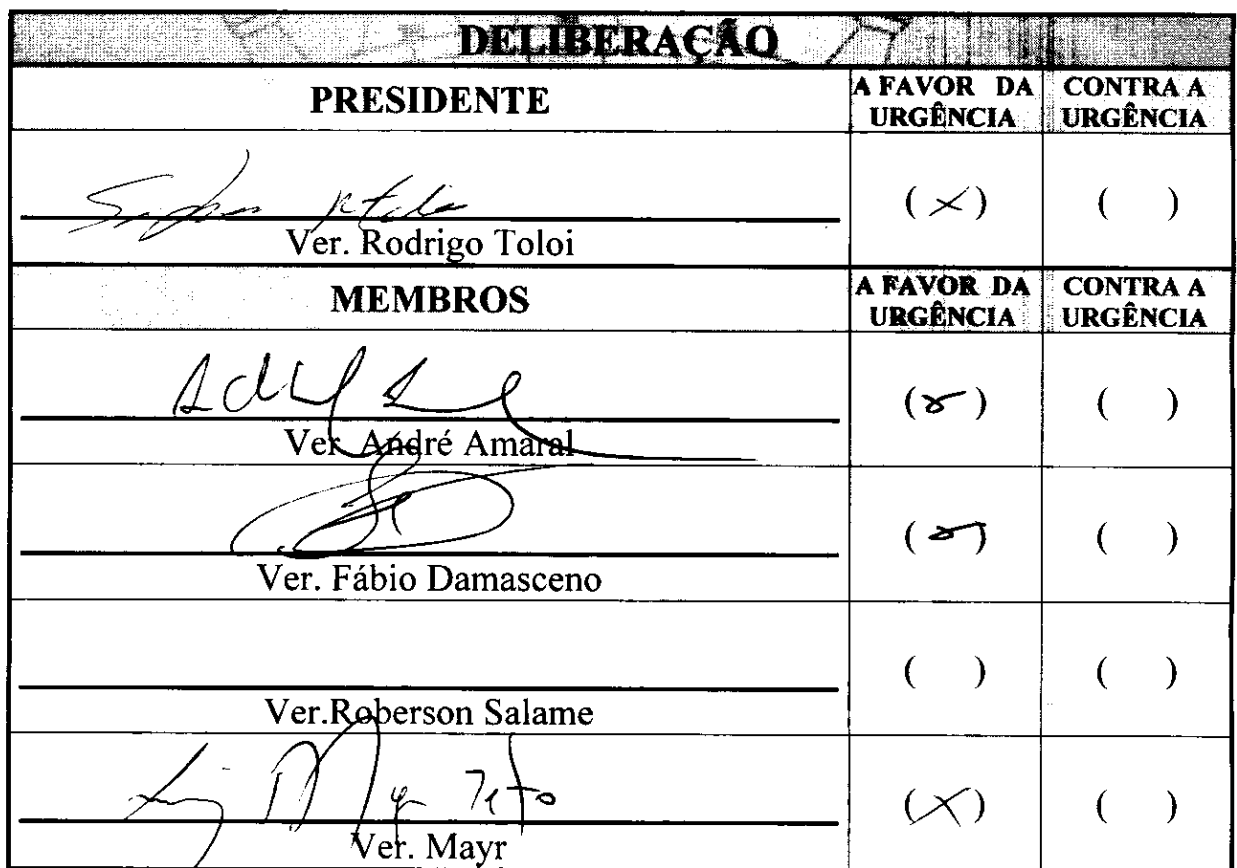 DELIBERAÇÃO
PRESIDENTE
A FAVOR DA URGÊNCIA
CONTRA A URGÊNCIA
(×) ( )
Ver. Rodrigo Toloi
MEMBROS
A FAVOR DA URGÊNCIA
CONTRA A URGÊNCIA
(x) ( )
Ver. André Amaral
(x) ( )
Ver. Fábio Damasceno
( ) ( )
Ver.Roberson Salame
(X) ( )
Ver. Mayr